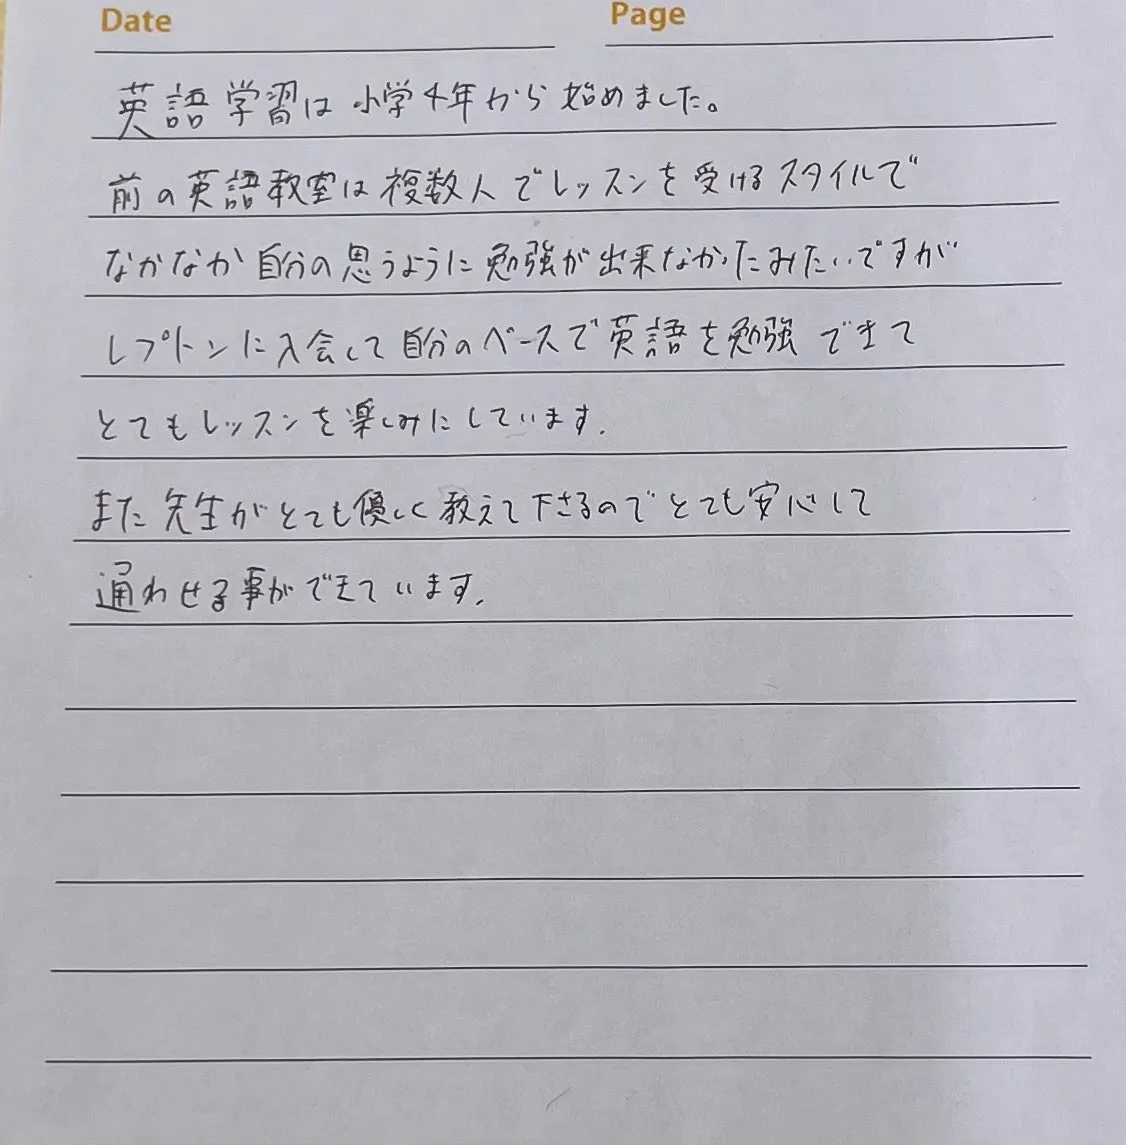 Date Page
英語学習は小学4年から始めました。
前の英語教室は複数人でレッスンを受けるスタイルで
なかなか自分の思うように勉強が出来なかったみたいですが
レプトンに入会して自分のペースで英語を勉強できて
とてもレッスンを楽しみにしています.
また先生がとても優しく教えて下さるのでとても安心して
通わせる事ができています.